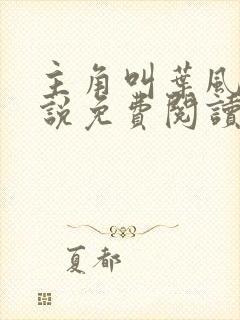 主角叫葉風
說免費閱讀
夏都